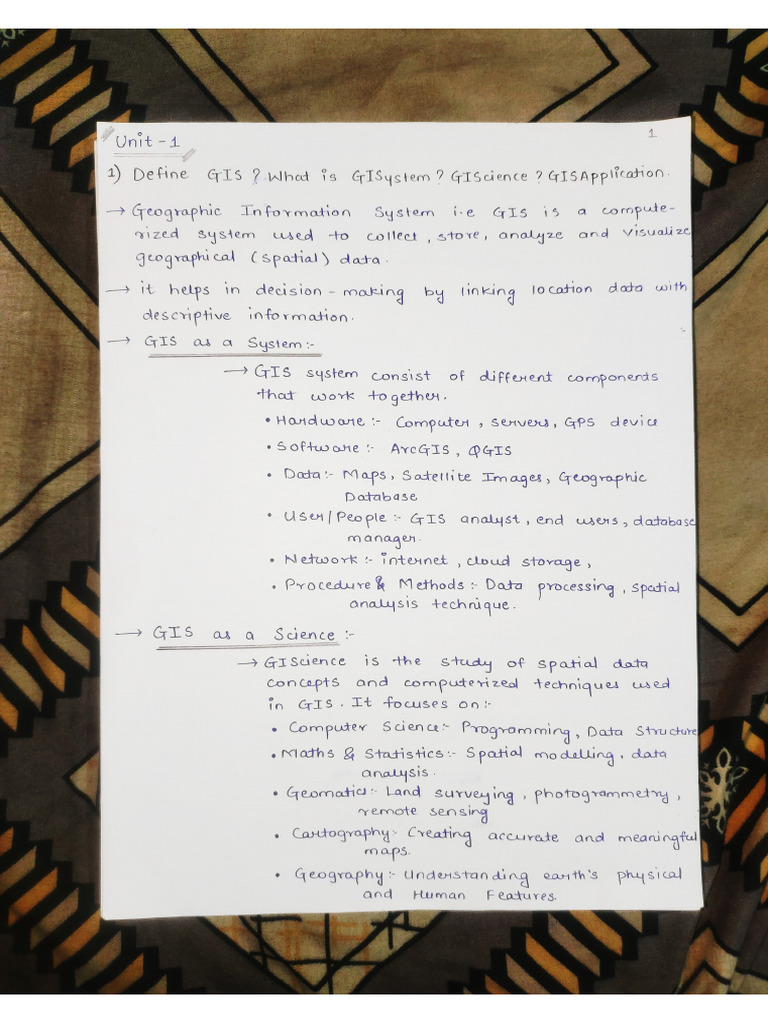 1
Unit-1
1) Define GIS? What is GISystem? GIScience? GISApplication.
→ Geographic Information System i.e GIS is a compute-
rized system used to collect, store, analyze and visualize
geographical (spatial) data.
→ it helps in decision-making by linking location data with
descriptive information.
→ GIS as a System:-
→ GIS system consist of different components
that work together.
• Hardware:- Computer, servers, GPS device
• Software:- ArcGIS, QGIS
• Data:- Maps, Satellite Images, Geographic
Database
• User/People:- GIS analyst, end users, database
manager.
• Network:- internet, cloud storage,
• Procedure & Methods:- Data processing, spatial
analysis technique.
→ GIS as a Science:-
→ GIScience is the study of spatial data
concepts and computerized techniques used
in GIS. It focuses on:-
• Computer Science:- Programming, Data Structure
• Maths & Statistics:- Spatial modelling, data
analysis.
• Geomatics:- Land surveying, photogrammetry,
remote sensing
• Cartography:- Creating accurate and meaningful
maps.
• Geography:- Understanding earth's physical
and Human Features.